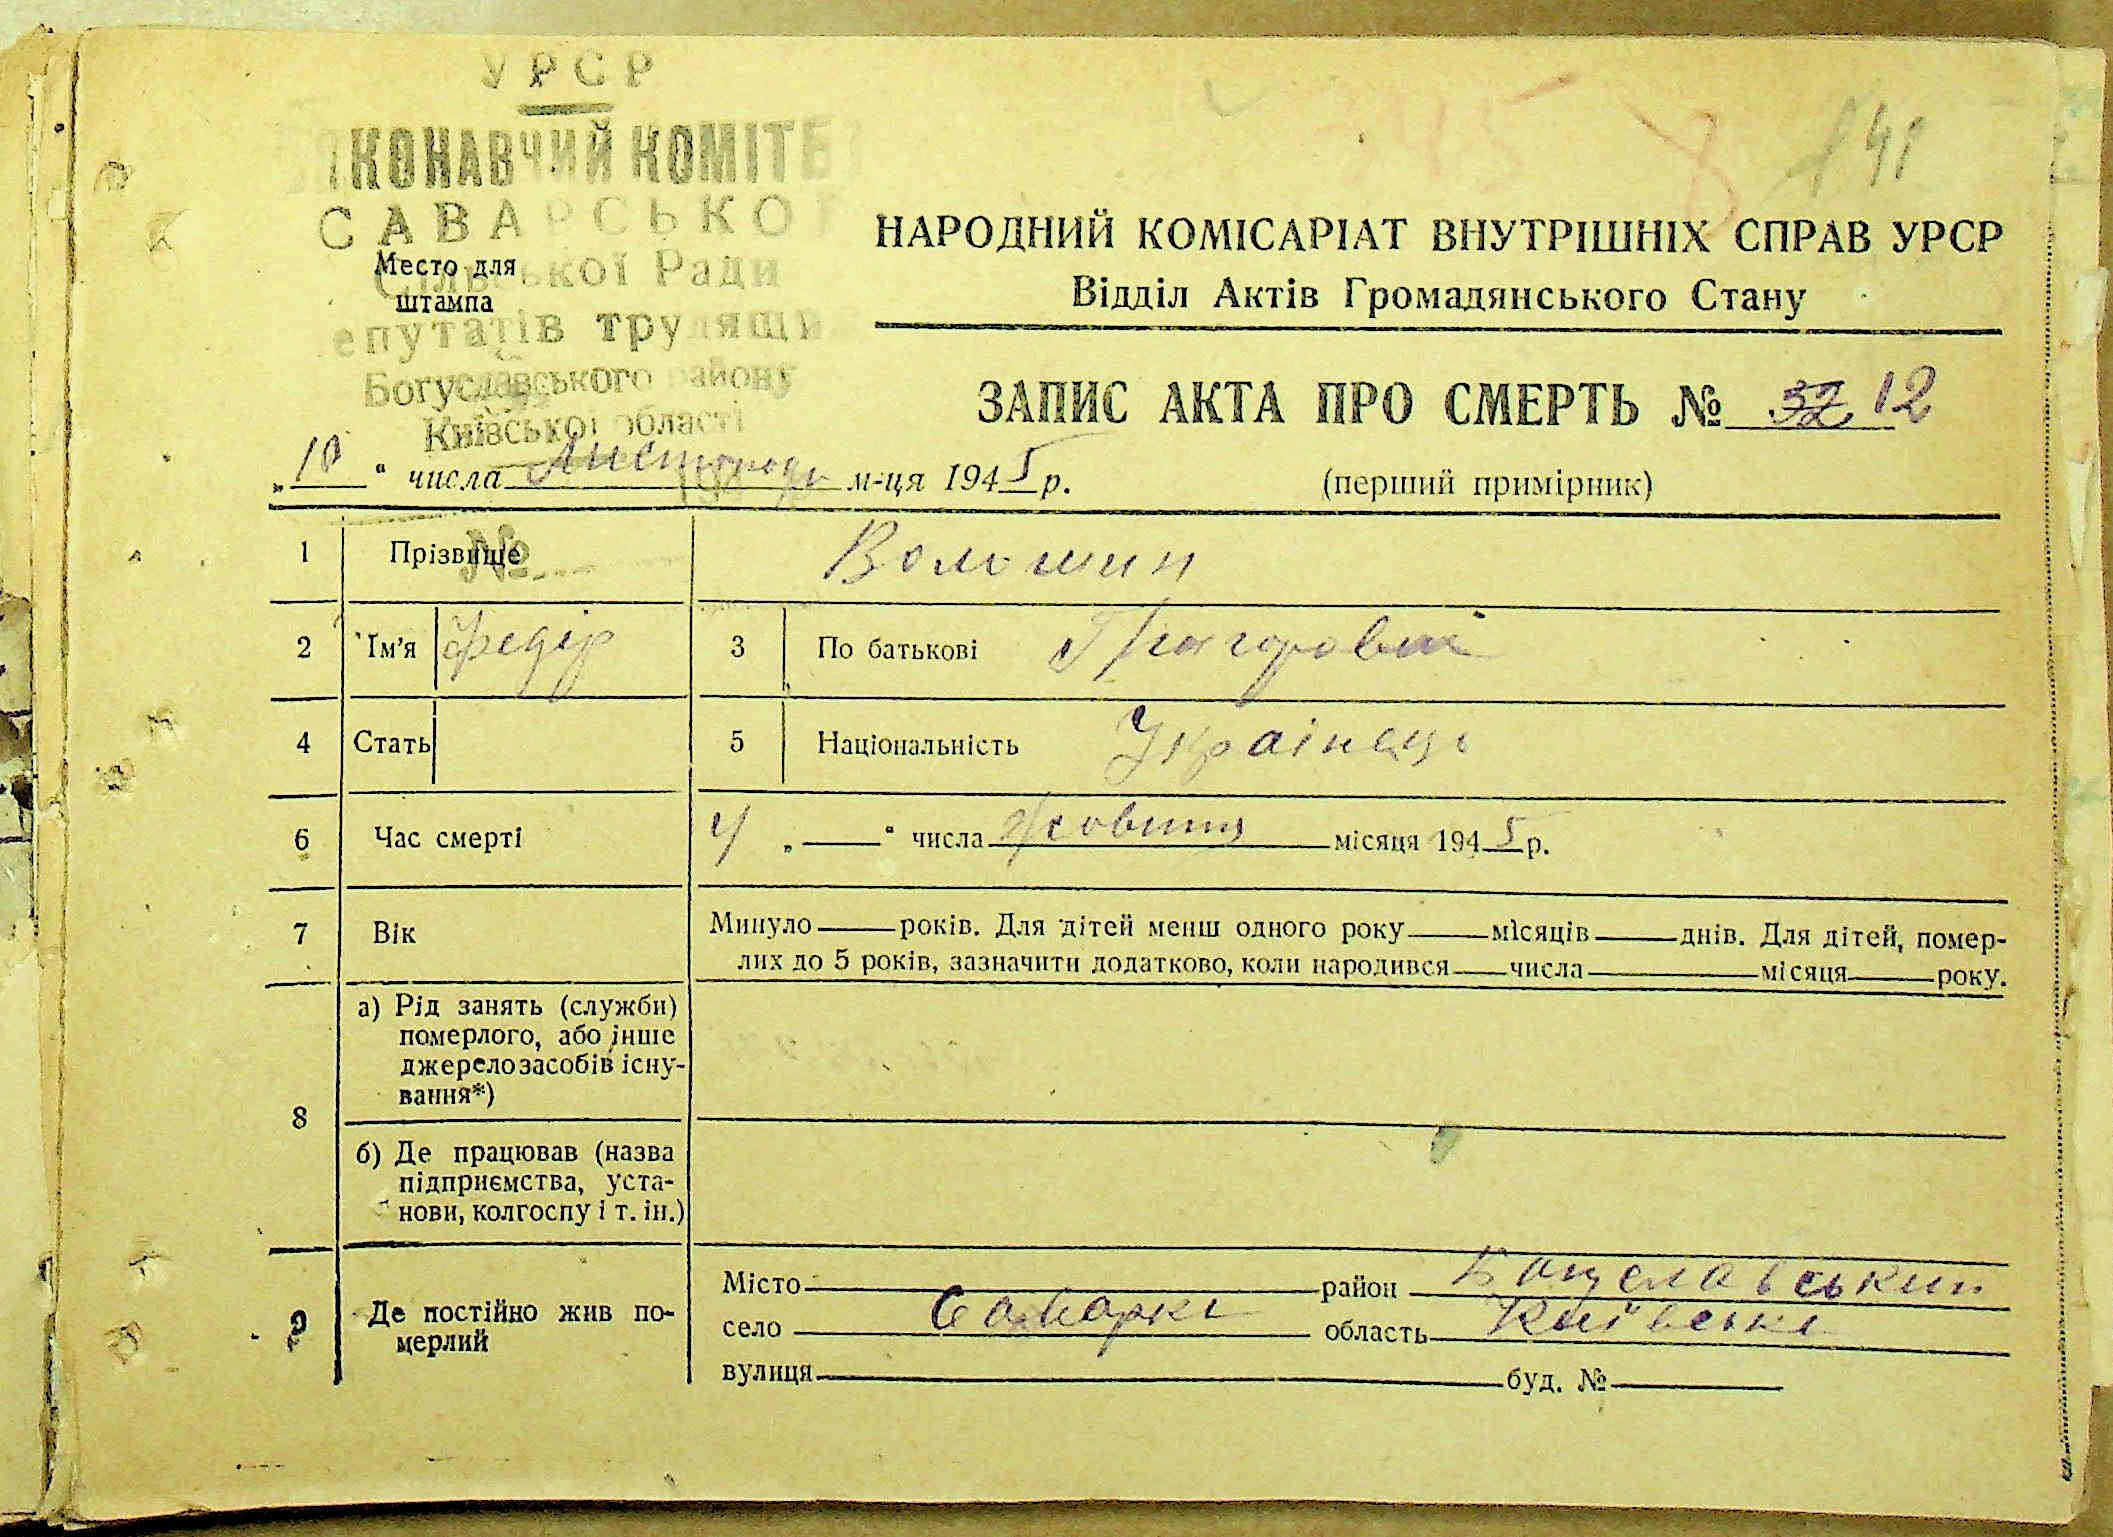 УРСР
ВИКОНАВЧИЙ КОМІТЕТ
САВАРСЬКОЇ
Сільської Ради
депутатів трудящих
Богуславського району
Київської області
Место для
штампа
№
141
НАРОДНИЙ КОМІСАРІАТ ВНУТРІШНІХ СПРАВ УРСР
Відділ Актів Громадянського Стану
ЗАПИС АКТА ПРО СМЕРТЬ № 32 12
„10“ числа Листопада м-ця 1945 р.
(перший примірник)
1 Прізвище Волошин
2 Ім'я Федір 3 По батькові Григорович
4 Стать 5 Національність Українець
6 Час смерті 4 „ “ числа Жовтня місяця 1945 р.
7 Вік Минуло років. Для дітей менш одного року місяців днів. Для дітей, помер-
лих до 5 років, зазначити додатково, коли народився числа місяця року.
8 а) Рід занять (служби)
померлого, або інше
джерело засобів існу-
вання*)
б) Де працював (назва
підприємства, уста-
нови, колгоспу і т. ін.)
9 Де постійно жив по-
мерлий
Місто район Богуславський
село Саварка область Київська
вулиця буд. №